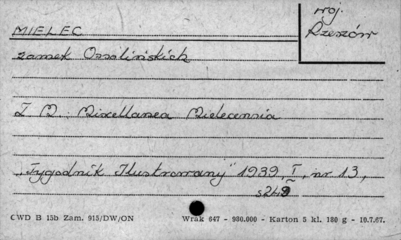 woj.
Rzeszów
MIELEC
zamek Ossolińskich
Z M: Miscellanea Mielecensia
"Tygodnik Ilustrowany" 1939, I, nr 13,
s 249
CWD B 15b Zam. 915/DW/ON Wrak 647 - 980.000 - Karton 5 kl. 180 g - 10.7.67.